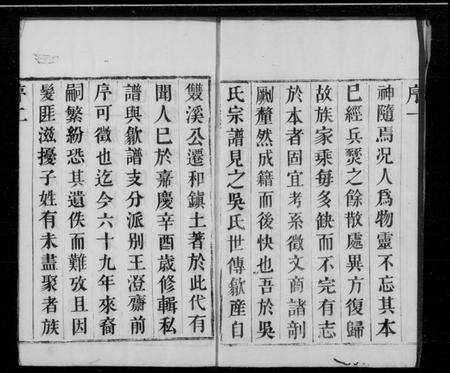 序一
神隨焉况人爲物靈不忘其本
已經兵燹之餘散處異方復歸
故族家乘每多缺而不完有志
於本者固宜考系徵文商諸剞
劂犛然成籍而後快也吾於吳
氏宗譜見之吳氏世傳歙產自
雙溪公遷和鎮土著於此代有
聞人巳於嘉慶辛酉歲修輯私
譜與歙譜支分派别王澄齋前
序可徵也迄今六十九年來裔
嗣繁紛恐其遺佚而難攷且因
髮匪滋擾子姓有未盡聚者族
序二